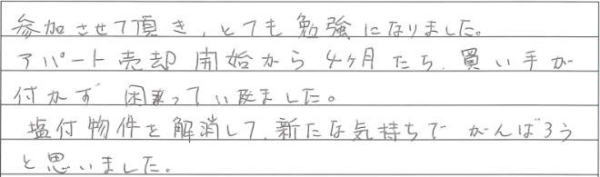 参加させて頂き、とても勉強になりました。
アパート売却開始から4ヶ月たち、買い手が
付かず困まっていました。
塩付物件を解消して、新たな気持ちでがんばろう
と思いました。